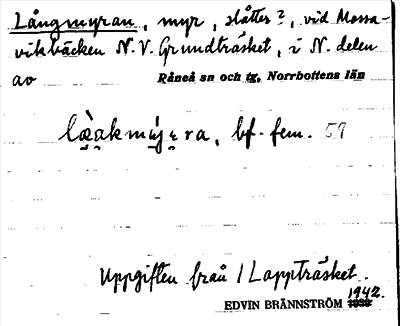 Långmyran, myr, slåtter?, vid Mossa-
vikbäcken N.V. Grundträsket, i N. delen
av Råneå sn och tg, Norrbottens län
bf. fem. 59
Uppgiften från / Lappträsket.
1942.
EDVIN BRÄNNSTRÖM 1939